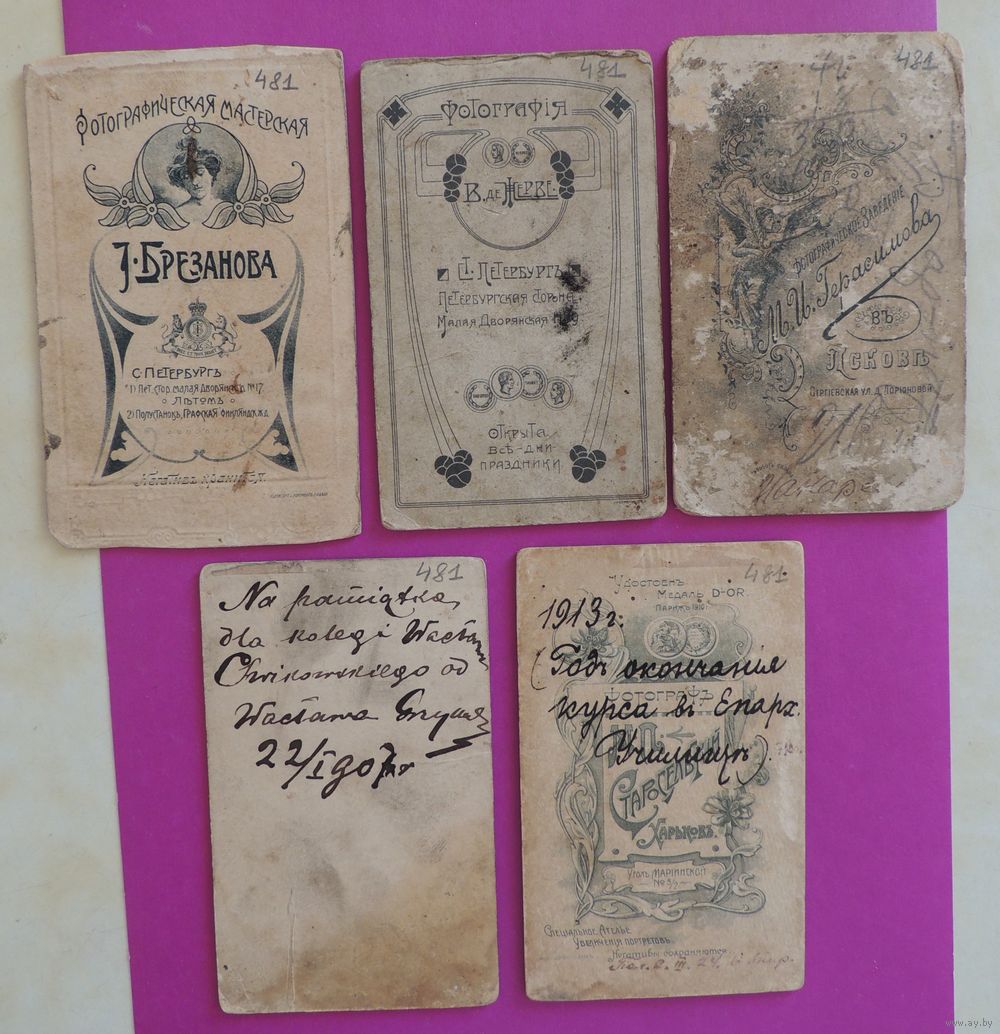 481
ФОТОГРАФИЧЕСКАЯ МАСТЕРСКАЯ
І. БРЕЗАНОВА
С. ПЕТЕРБУРГЪ
1) ПЕТ. СТОР. МАЛАЯ ДВОРЯНСК. № 17.
ЛѢТОМЪ
2) ПОЛУСТАНОКЪ, ГРАФСКАЯ ФИНЛЯНДСК. Ж.Д.
481
ФОТОГРАФІЯ
В. ДЕ ЖЕРВЕ.
С.-ПЕТЕРБУРГЪ
ПЕТЕРБУРГСКАЯ СТОРНА
МАЛАЯ ДВОРЯНСКАЯ
ОТКРЫТА
ВСѢ-ДНИ-
ПРАЗДНИКИ
481
ФОТОГРАФИЧЕСКОЕ ЗАВЕДЕНІЕ
М. И. Герасимова
ВЪ
ПСКОВѢ
СЕРГІЕВСКАЯ УЛ. Д. ЛОРІОНОВОЙ
481
Na pamiątkę
dla kolegi Wacława
Ćwikowskiego od
Wacława
22/I 907
481
УДОСТОЕНЪ
МЕДАЛЬ D'OR.
ПАРИЖЪ 1910г.
1913 г.
(Годъ окончанія
ФОТОГРАФЪ
курса въ Епарх.
Училищѣ)
СТАРОСЕЛЬСКІЙ
ХАРЬКОВЪ.
УГОЛЪ МАРІИНСКОЙ
СПЕЦІАЛЬНОЕ АТЕЛЬЕ
УВЕЛИЧЕНІЯ ПОРТРЕТОВЪ
Негативы сохраняются
www.ay.by